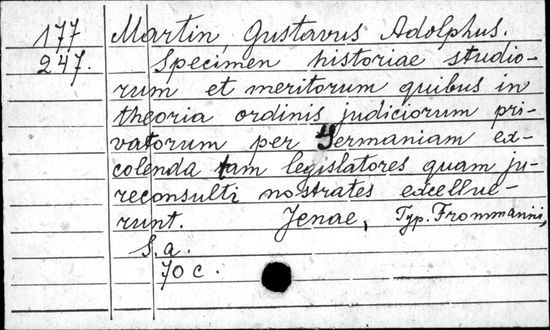 177 Martin, Gustavus Adolphus.
247. Specimen historiae studio-
rum et meritorum quibus in
theoria ordinis judiciorum pri-
vatorum per Germaniam ex-
colenda tam legislatores quam ju-
reconsulti nostrates excellue-
runt. Jenae, Typ. Frommanni,
S. a.
70 c.